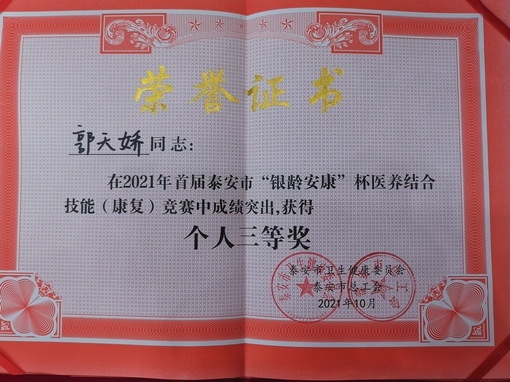 荣誉证书
郭天娇同志：
在2021年首届泰安市“银龄安康”杯医养结合
技能（康复）竞赛中成绩突出，获得
个人三等奖
泰安市卫生健康委员会
泰安市总工会
2021年10月